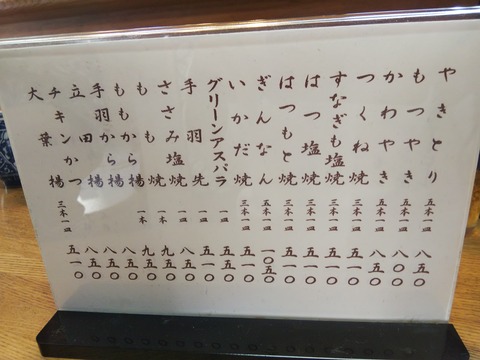 やきとり 五本一皿 八五〇
もつやき 五本一皿 八〇〇
かわやき 五本一皿 八五〇
つくね焼 三本一皿 五一〇
すなぎも塩焼 三本一皿 五一〇
はつ塩焼 三本一皿 五一〇
はつもと焼 三本一皿 五一〇
ぎんなん 五本一皿 一〇五〇
いかだ焼 三本一皿 五一〇
グリーンアスパラ 一皿 五一〇
手羽焼 一皿 八五〇
ささみ塩焼 一皿 八五〇
もも焼 一本 九五〇
ももから揚 一本 九五〇
手羽から揚 八五〇
立田揚 八五〇
チキンかつ 八五〇
大葉揚 三本一皿 五一〇